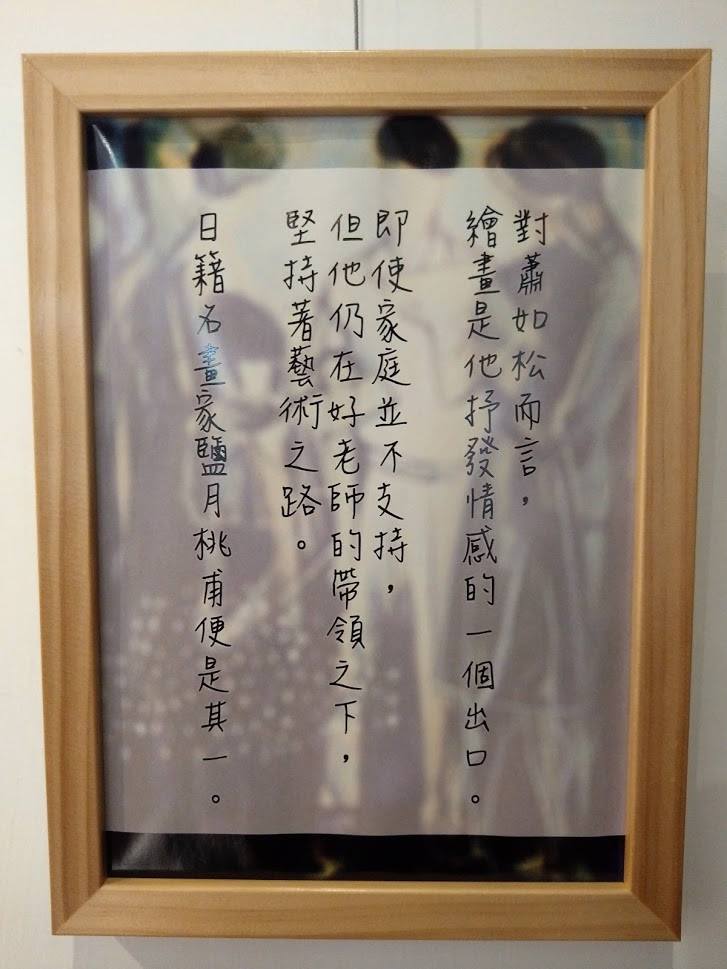 對蕭如松而言，
繪畫是他抒發情感的一個出口。
即使家庭並不支持，
但他仍在好老師的帶領之下，
堅持著藝術之路。
日籍名畫家鹽月桃甫便是其一。